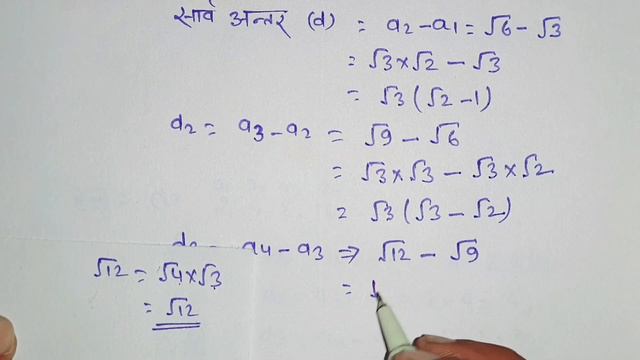 सार्व अन्तर (d) = a2-a1 = √6 - √3
= √3×√2 - √3
= √3(√2-1)
d2 = a3-a2 = √9 - √6
= √3×√3 - √3×√2
= √3(√3-√2)
a4-a3 ⇒ √12 - √9
=
√12 = √4×√3
= √12